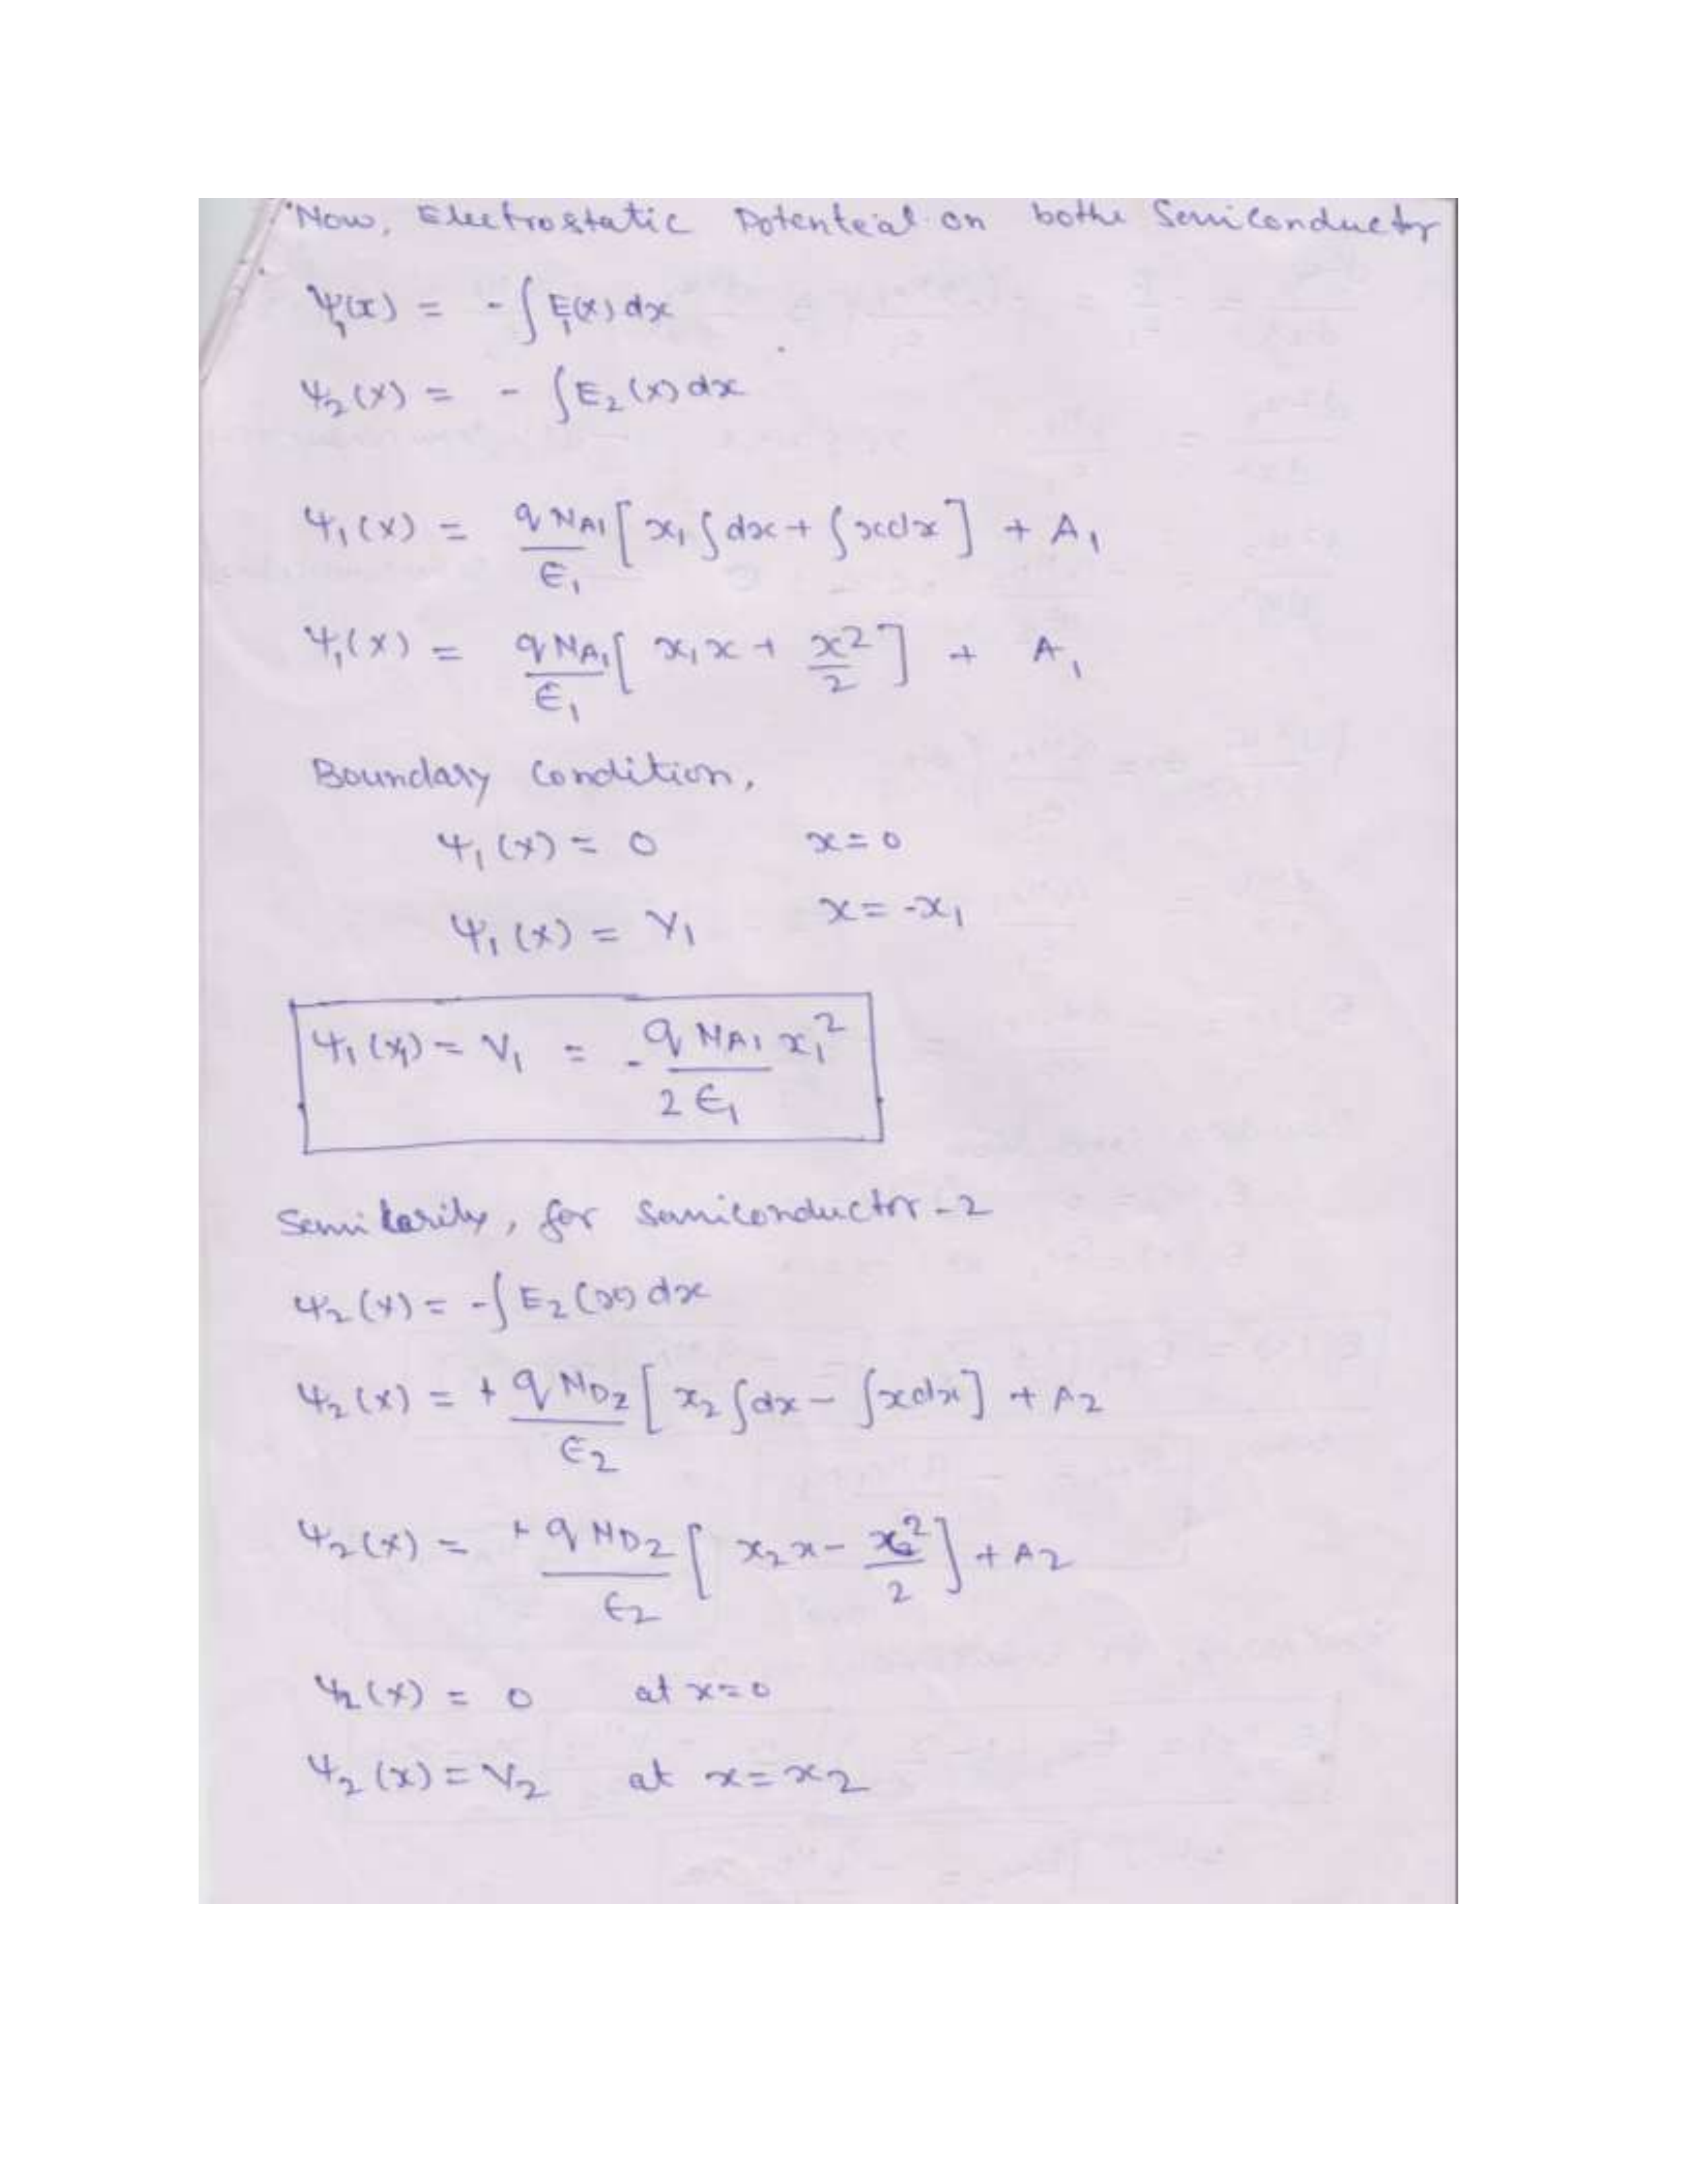 Now, Electrostatic Potenteial on bothe Semiconductor
Ψ₁(x) = - ∫ E₁(x) dx
Ψ₂(x) = - ∫ E₂(x) dx
Ψ₁(x) = qN_A1/ϵ₁ [ x₁ ∫dx + ∫xdx ] + A₁
Ψ₁(x) = qN_A1/ϵ₁ [ x₁x + x²/2 ] + A₁
Boundary Condition,
Ψ₁(x) = 0 x=0
Ψ₁(x) = V₁ x=-x₁
Ψ₁(x₁) = V₁ = - qN_A1 x₁²/2ϵ₁
Semilarily, for Semiconductor-2
Ψ₂(x) = -∫E₂(x) dx
Ψ₂(x) = + qN_D2/ϵ₂ [ x₂ ∫dx - ∫xdx ] + A₂
Ψ₂(x) = + qN_D2/ϵ₂ [ x₂x - x²/2 ] + A₂
Ψ₂(x) = 0 at x=0
Ψ₂(x) = V₂ at x=x₂